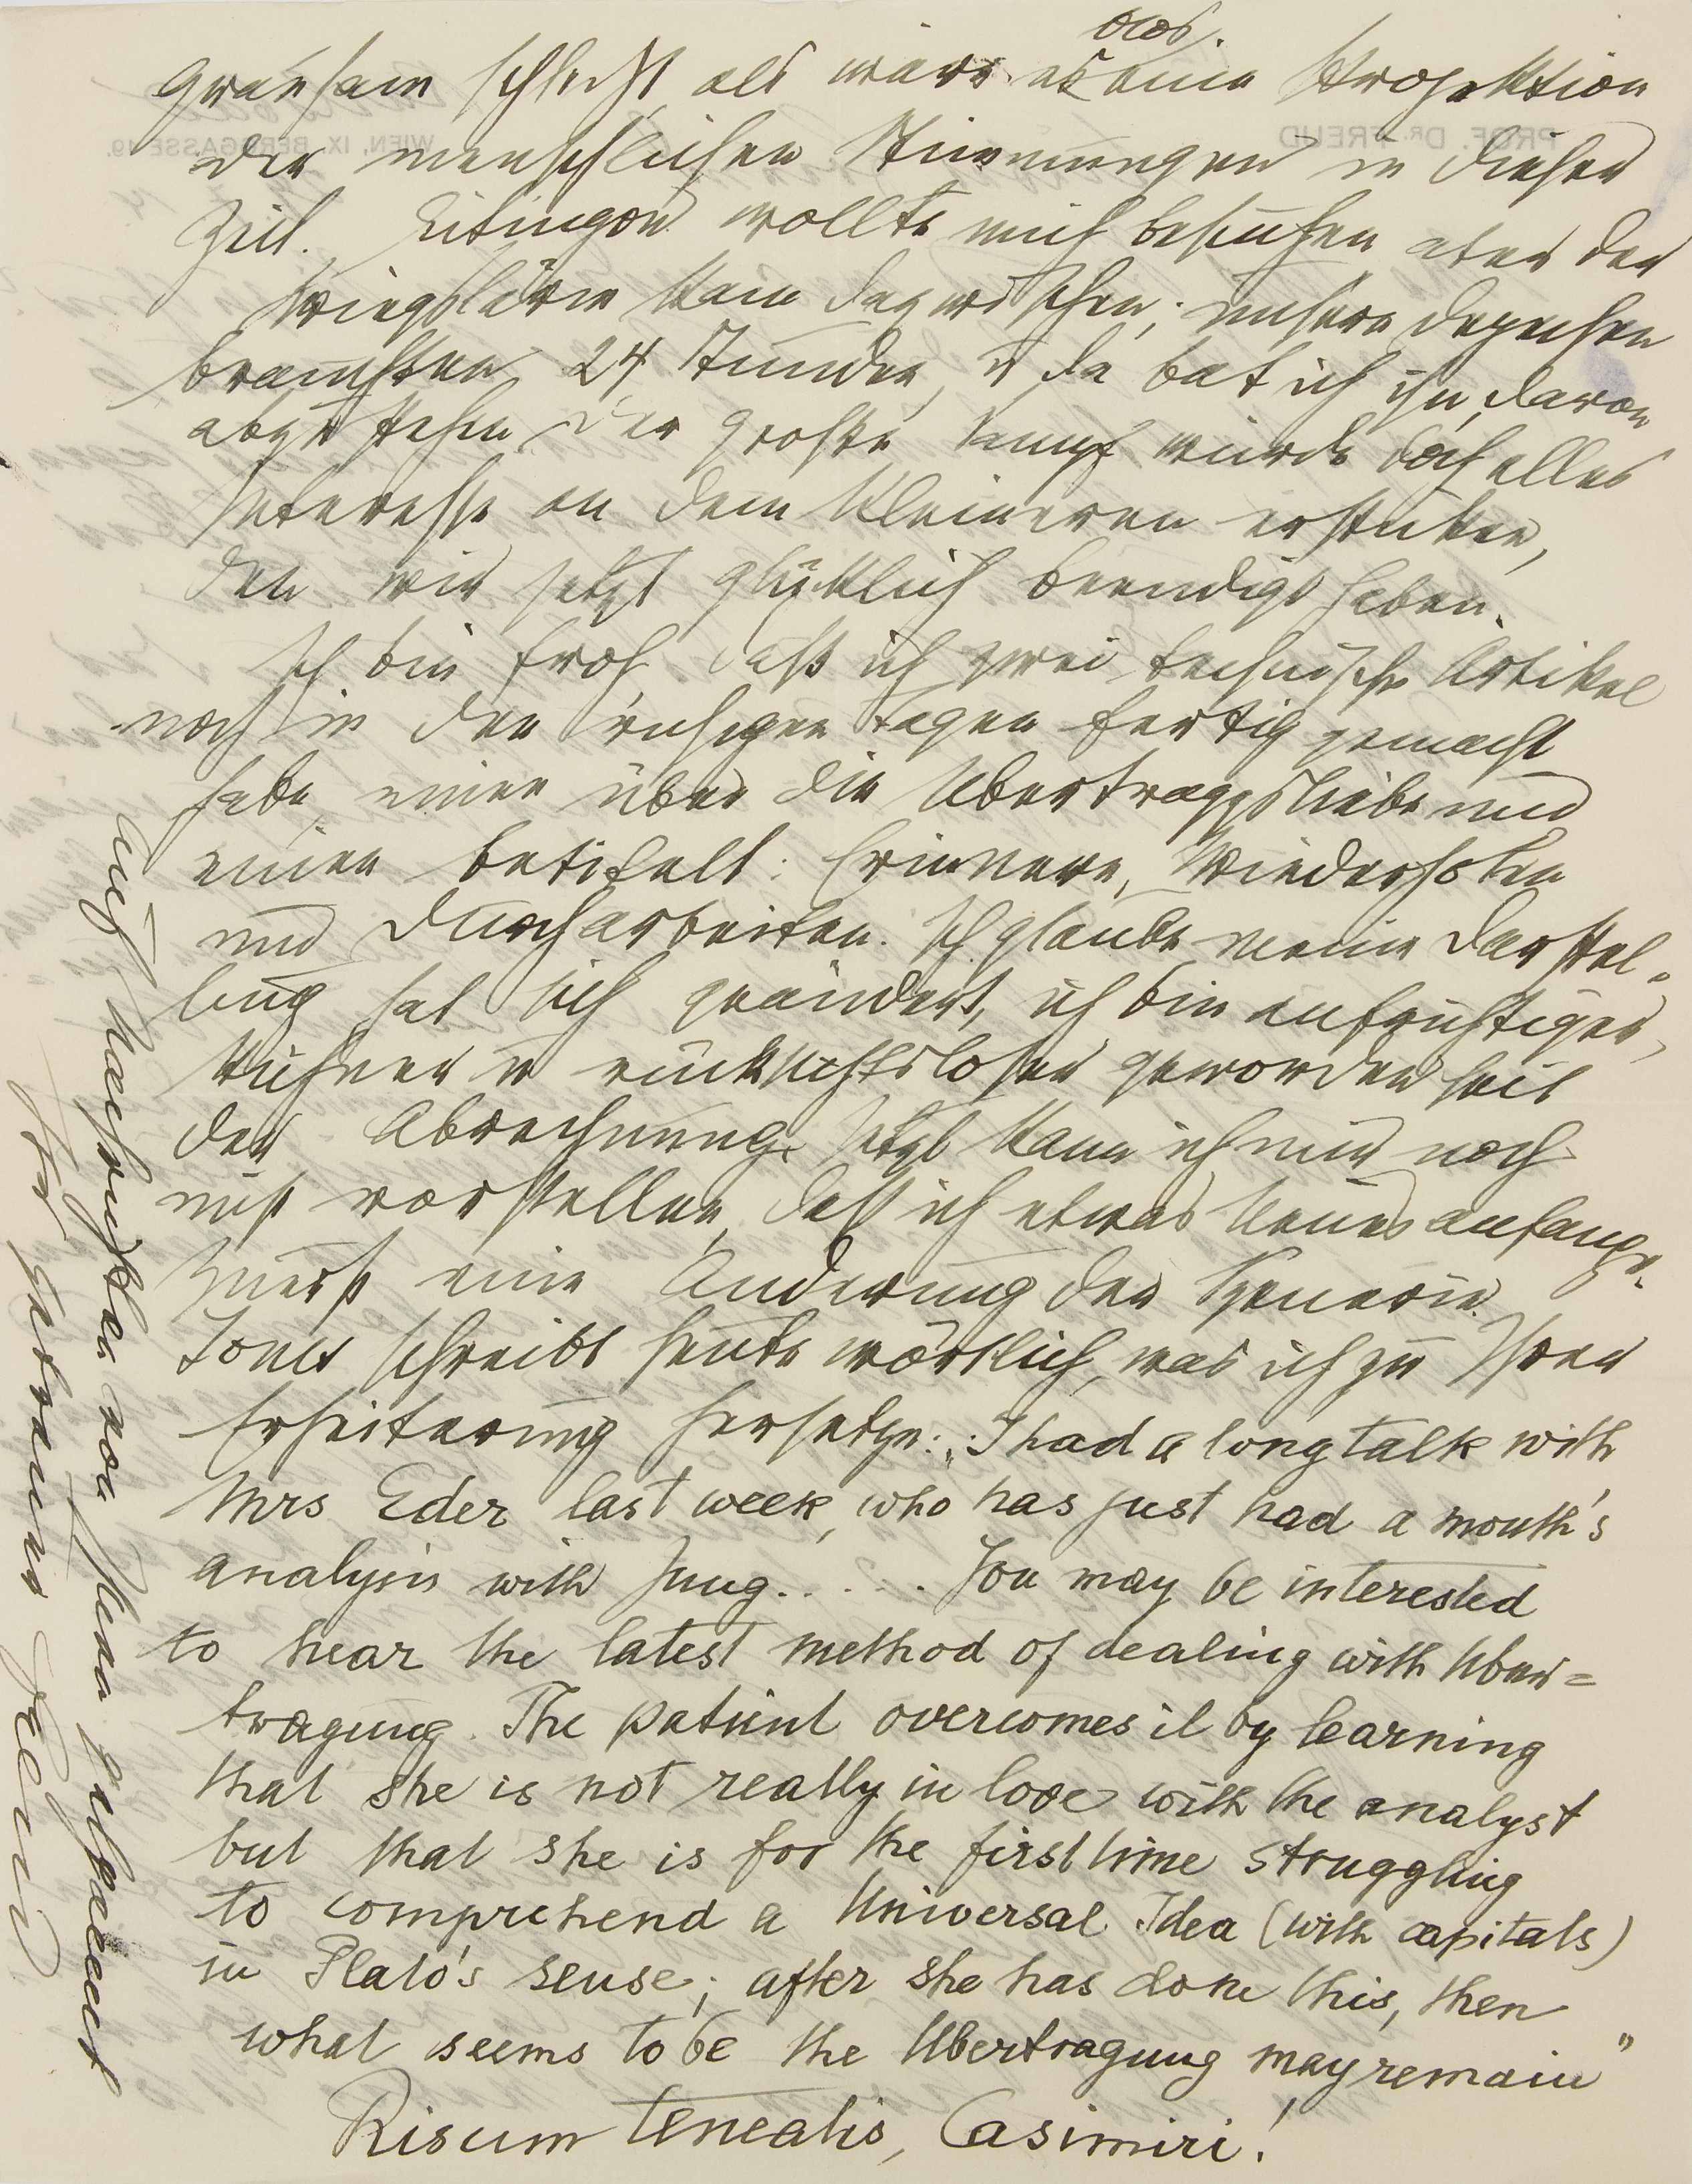 blos
grausam schlecht, als wäre es eine Projektion
der menschlichen Stimmungen in dieser
Zeit. Eitingon wollte mich besuchen aber der
Kriegslärm kam dazwischen; unsere Depeschen
brauchten 24 Stunden, u da bat ich ihn, davon
abzustehen. Der große Kampf würde doch alles
Interesse an dem kleineren ersticken,
den wir jetzt glücklich beendigt haben.
Ich bin froh, daß ich zwei technische Artikel
noch in den ruhigen Tagen fertig gemacht
habe, einen über die Übertraggsliebe und
einen betitelt: Erinnern, Wiederholen
und Durcharbeiten. Ich glaube, meine Darstel-
lung hat sich geändert, ich bin aufrichtiger,
kühner u rücksichtsloser geworden seit
der Abrechnung. Jetzt kann ich mir noch
nicht vorstellen, daß ich etwas Neues anfange.
Zuerst eine Änderung der Szenerie.
Jones schreibt heute wörtlich, was ich zu Ihrer
Erheiterung hersetze: „I had a long talk with
Mrs Eder last week, who has just had a month's
analysis with Jung. . . . . You may be interested
to hear the latest method of dealing with Über=
tragung. The patient overcomes it by learning
that she is not really in love with the analyst
but that she is for the first time struggling
to comprehend a Universal Idea (with capitals)
in Plato's sense; after she has done this, then
what seems to be the Übertragung may remain"
Risum teneatis, Casimiri!
Auf Nachrichten von Ihnen gespannt
Ihr getreuer Freud
PROF. DR. FREUD
WIEN, IX. BERGGASSE 19.